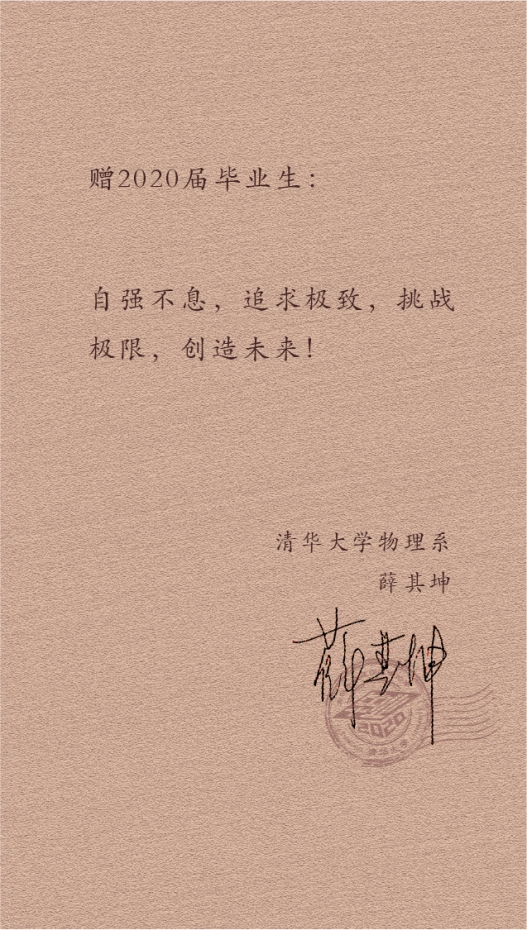 赠2020届毕业生：
自强不息，追求极致，挑战
极限，创造未来！
清华大学物理系
薛其坤
薛其坤
2020
清华大学